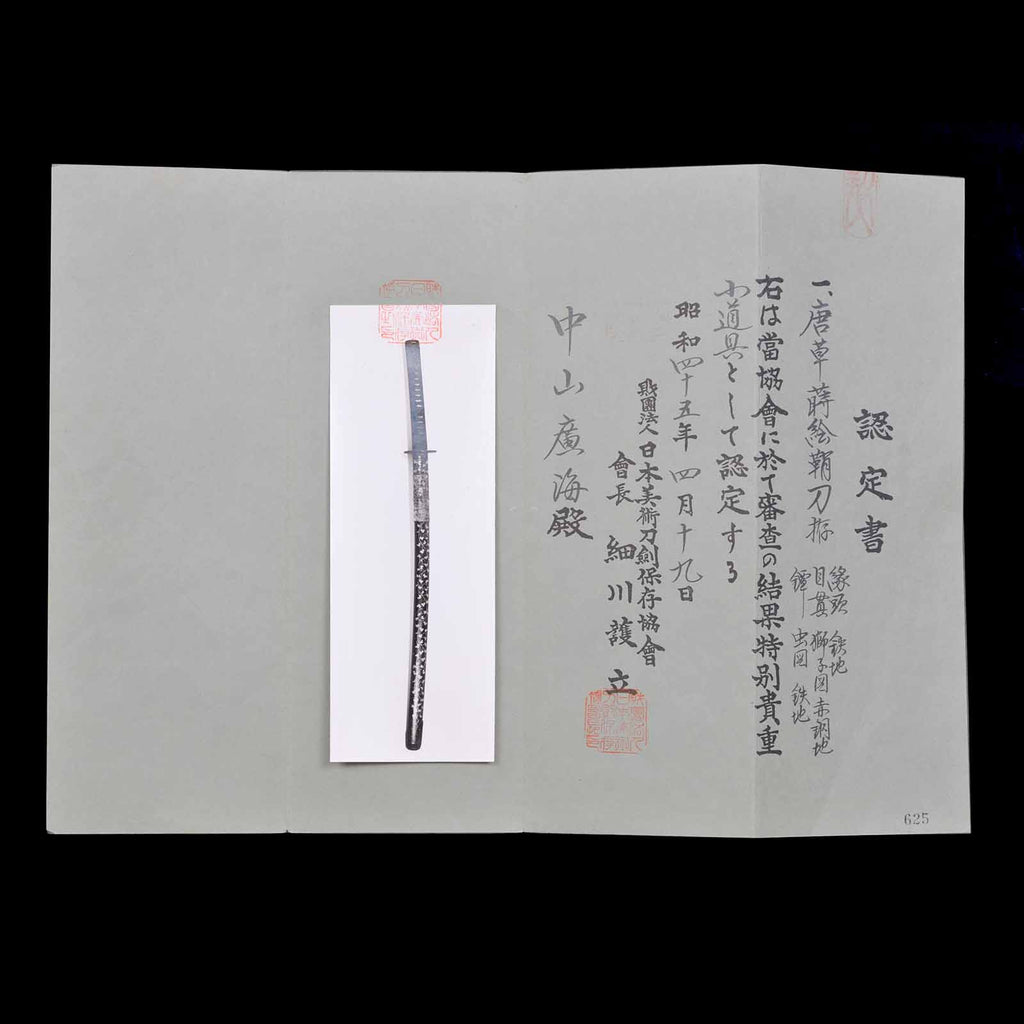 認定書
一、唐草蒔絵鞘刀拵
縁頭 鉄地
目貫 獅子図赤銅地
鐔 虫図 鉄地
右は當協會に於て審査の結果特別貴重
小道具として認定する
昭和四十五年四月十九日
財團法人日本美術刀劍保存協會
會長 細川護立
中山廣海殿
625